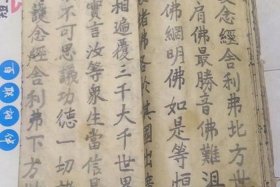 念經舍利弗北方世
肩佛最勝音佛難沮
佛網明佛如是等恒
諸佛各於其國出廣
相遍覆三千大千世界
實言汝等衆生當信是
不可思議功德一切
護念經舍利弗下方